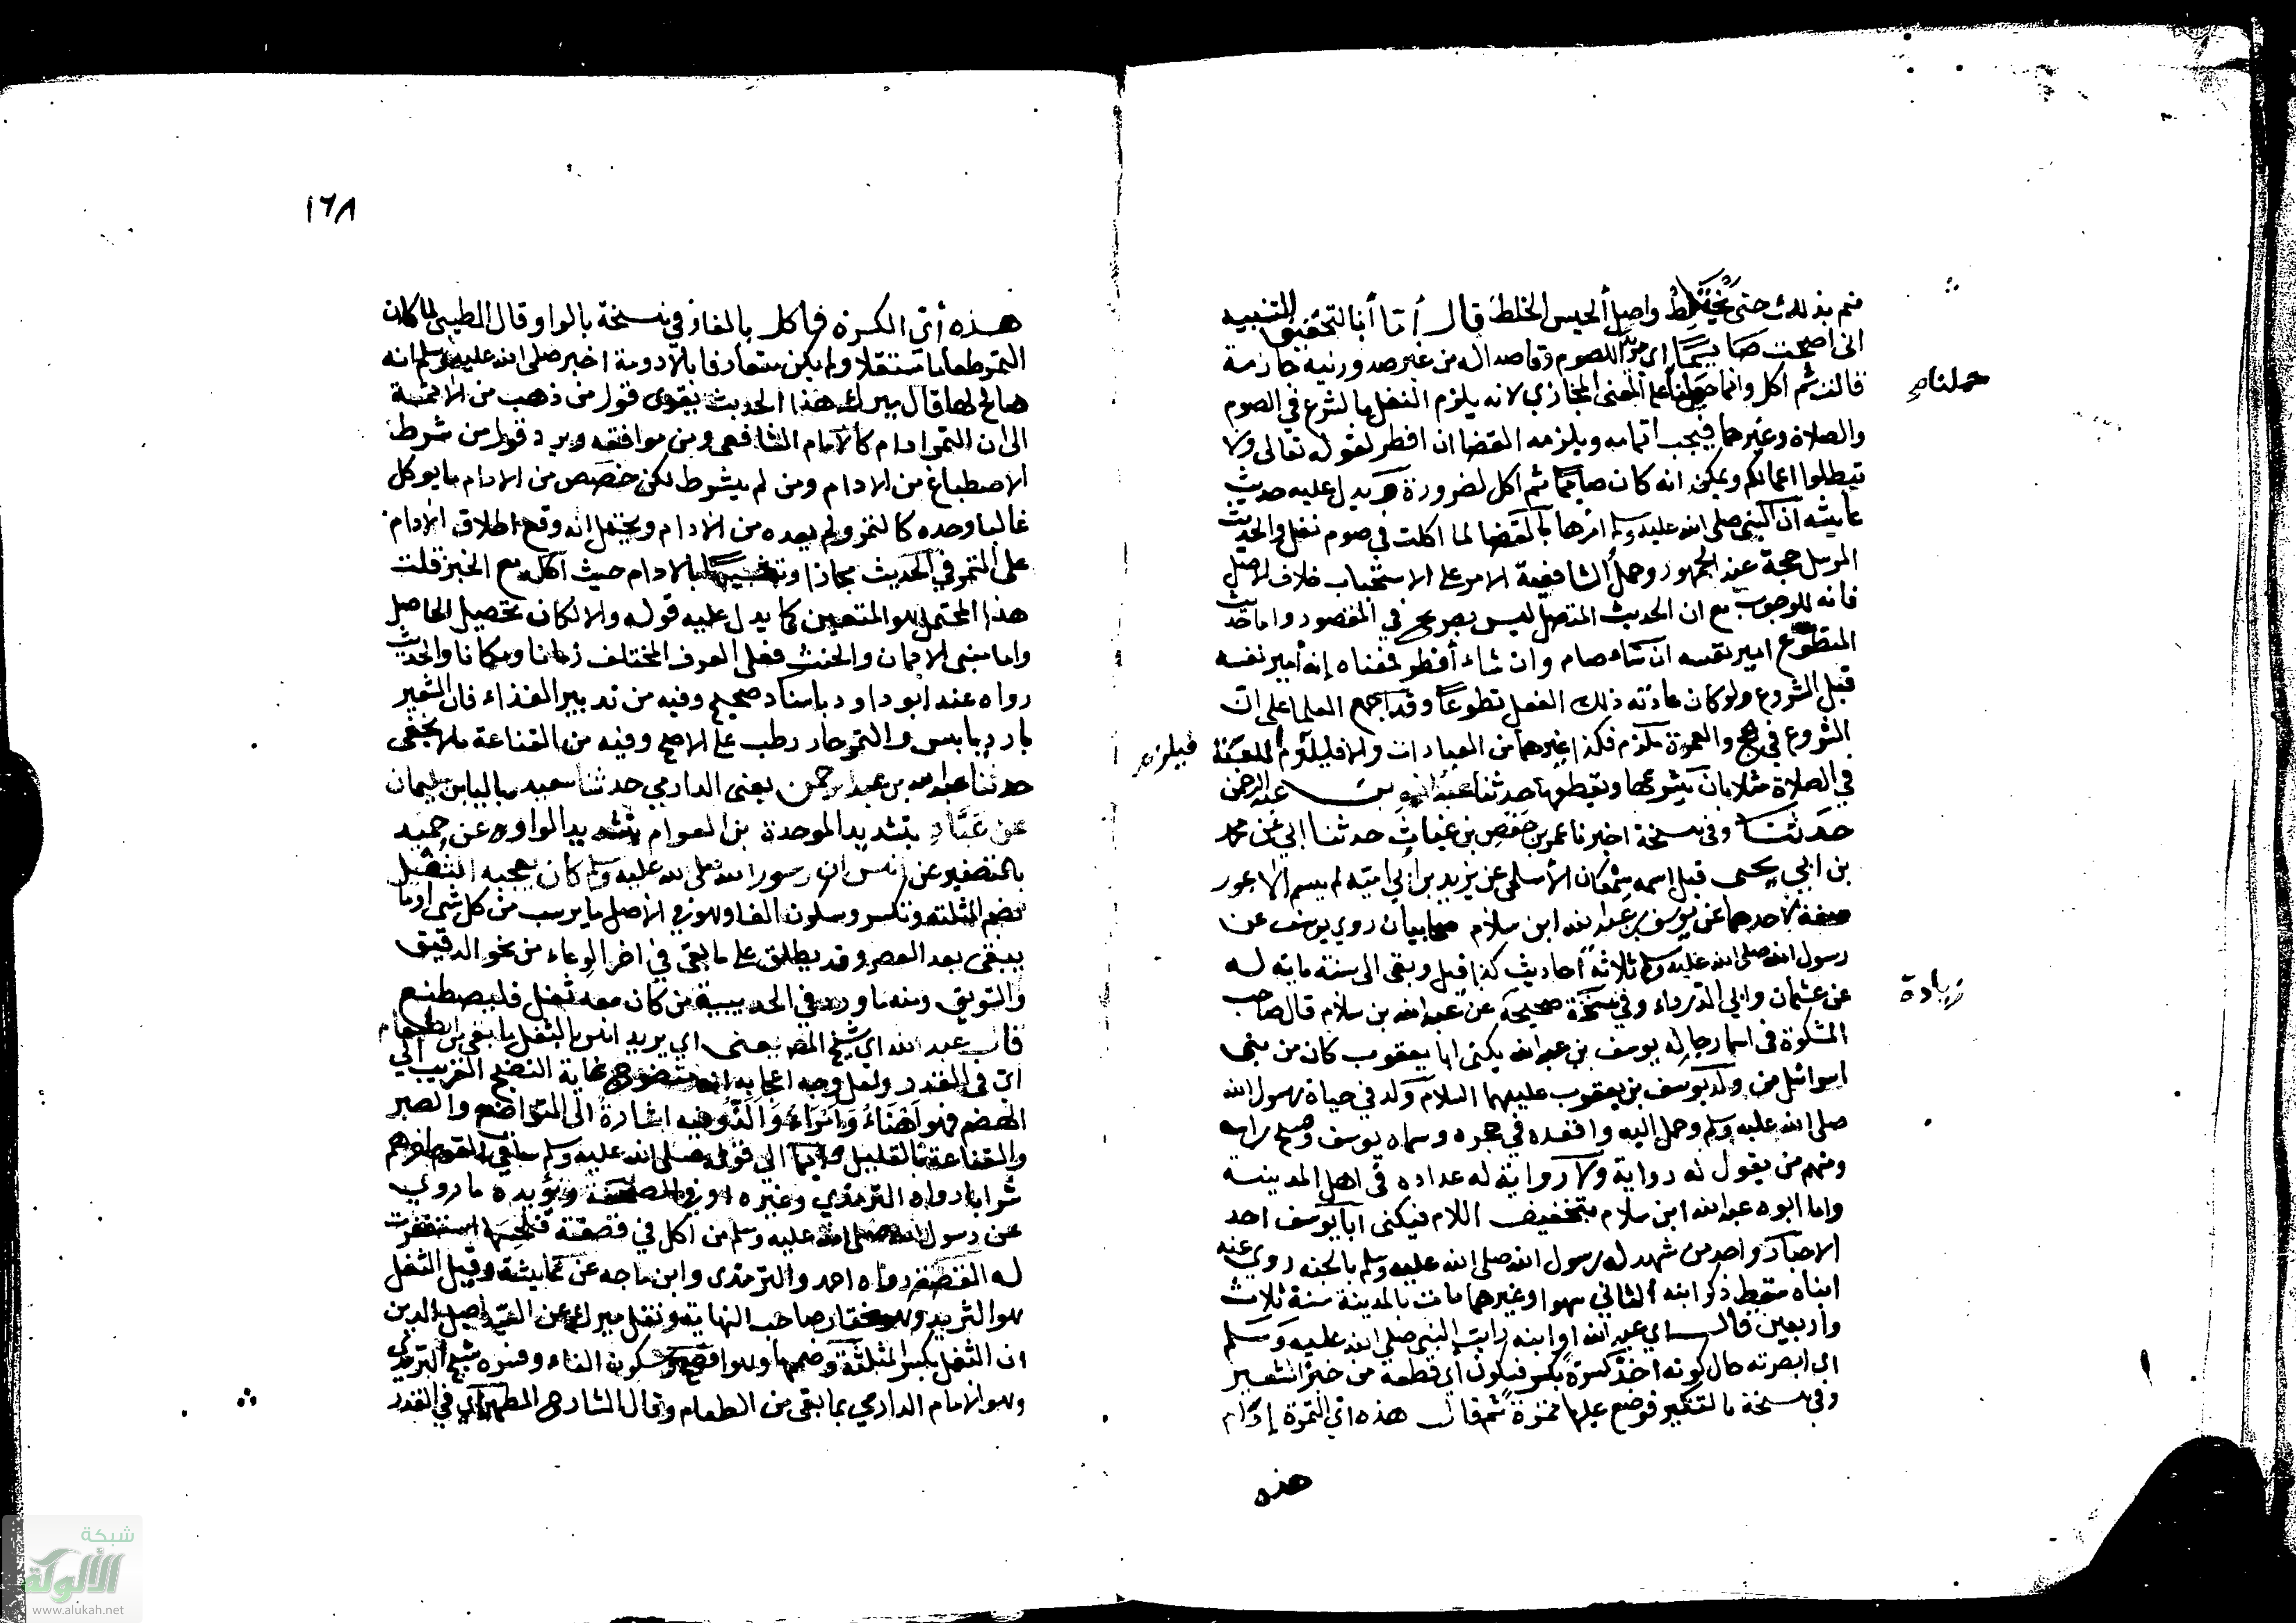 فيم بذلك حتى يختلط واصل الحيس الخلط قال أما أنا بالتخفيف للتنبيه
اني اصبحت صايما اي مريدا للصوم وقاصدا له من غير صدور نية جازمة
قالت ثم اكل وانما حملناه على المعنى المجازي لانه يلزم النفل بالشرع في الصوم
حملناه
والصلاة وغيرهما فيجب اتمامه ويلزمه القضا ان افطر لقوله تعالى ولا
تبطلوا اعمالكم ويمكن انه كان صايما ثم اكل لضرورة ويدل عليه حديث
عايشه ان النبي صلى الله عليه وسلم امرها بالقضا لما اكلت في صوم نفل والحديث
المرسل حجة عند الجمهور وحمل الشافعية الامر على الاستحباب خلاف الاصل
فانه للوجوب مع ان الحديث المتصل ليس بصريح في المقصود واما حديث
المتطوع امير نفسه ان شاء صام وان شاء أفطر فمعناه إنه أمير نفسه
قبل الشروع ولو كان عادته ذلك الفعل تطوعا وقد اجمع العلما على ان
الشروع في الحج والعمرة ملزم فكذا غيرهما من العبادات والا فيلزم الملعبة
فيلزم
في الصلاة مثلا بان يشرعها ويقطعها حدثنا عبد الله بن عبد الرحمن
حدثنا وفي نسخة اخبرنا عمر بن حفص بن غياث حدثنا ابي عن محمد
بن ابي يحيى قيل اسمه سمعان الأسلمي عن يزيد بن ابي اميه لم يسم الاعور
صفة لاحدهما عن يوسف بن عبد الله ابن سلام صحابيان روى يوسف عن
رسول الله صلى الله عليه وسلم ثلاثة احاديث كذا قيل وبقى الى سنة مايه له
عن عثمان وابي الدرداء وفي نسخة صحيحة عن عبد الله بن سلام قال صاحب
زيادة
المشكوة في اسما رجاله يوسف بن عبد الله يكنى ابا يعقوب كان من بني
اسرائيل من ولد يوسف بن يعقوب عليهما السلام ولد في حياة رسول الله
صلى الله عليه وسلم وحمل اليه واقعده في حجره وسماه يوسف ومسح راسه
ومنهم من يقول له رواية ولا رواية له عداده في اهل المدينة
واما ابوه عبد الله ابن سلام بتخفيف اللام فيكنى ابا يوسف احد
الاحبار واحد من شهد له رسول الله صلى الله عليه وسلم بالجنه روى عنه
ابناه سقط ذكر ابنه الثاني سهوا وغيرهما مات بالمدينة سنة ثلاث
واربعين قال اي عبد الله او ابنه رايت النبي صلى الله عليه وسلم
اي ابصرته حال كونه اخذ كسرة بكسر فسكون اي قطعة من خبز الشعير
وفي نسخة بالتنكير فوضع عليها تمرة ثم قال هذه اي التمرة إدام
هذه
١٦٨
هذه أي الكسرة فاكل بالفاء وفي نسخة بالواو وقال الطيبي لما كان
التمر طعاما مستقلا ولم يكن متعارفا بالأدومة اخبر صلى الله عليه وسلم انه
صالح لها قال ميرك هذا الحديث يقوى قول من ذهب من الائمة
الى ان التمر ادام كالامام الشافعي ومن موافقه ويرد قول من شرط
الاصطباغ من الادام ومن لم يشرط لكن خصص من الادام ما يوكل
غالبا وحده كالتمر ولم يعده من الادام ويحتمل انه وقع اطلاق الادام
على التمر في الحديث مجازا وتشبيها بالادام حيث اكله مع الخبز قلت
هذا المحتمل هو المتعين كما يدل عليه قوله والا لكان تحصيل الحاصل
واما مبنى الايمان والحنث فعلى العرف المختلف زمانا ومكانا والحديث
رواه عنه ابو داود باسناد صحيح وفيه من تدبير الغذاء فان الشعير
بارد يابس والتمر حار رطب على الاصح وفيه من القناعة ما لا يخفى
حدثنا عبد الله بن عبد الرحمن يعني الدارمي حدثنا سعيد بالياء بن سليمان
عن عباد بتشديد الموحدة بن العوام بتشديد الواو عن حميد
بالتصغير عن انس ان رسول الله صلى الله عليه وسلم كان يعجبه الثفل
بضم المثلثه وتكسر وسكون الفا وهو في الاصل ما يرسب من كل شي او ما
يبقى بعد العصر وقد يطلق على ما بقى في اخر الوعاء من نحو الدقيق
والسويق ومنه ما ورد في الحديبية من كان معه ثفل فليصطنع
قال عبد الله اي شيخ المص يعني اي يريد انس بالثفل ما بقى من الطعام
اي في القدر ولعل وجه اعجابه انه منضوج غاية النضج القريب الى
الهضم فهو أهنأ وأمرأ وألذ وفيه اشارة الى التواضع والصبر
والقناعة بالقليل وايما الى قوله صلى الله عليه وسلم ساقي القوم اخرهم
شرابا رواه الترمذي وغيره او في الصحفة ويؤيده ما روي
عن رسول الله صلى الله عليه وسلم من اكل في قصعة فلحسها استغفرت
له القصعة رواه احمد والترمذي وابن ماجه عن عايشة وقيل الثفل
هو الثريد وهو مختار صاحب النهاية ونقل ميرك عن السيد اصيل الدين
ان الثفل بكسر المثلثة وضمها وهو افصح وسكون الفاء وفسره شيخ الترمذي
وهو الامام الدارمي بما بقى من الطعام وقال الشارح المظهر اي في القدر
شبكة
الألوكة
www.alukah.net